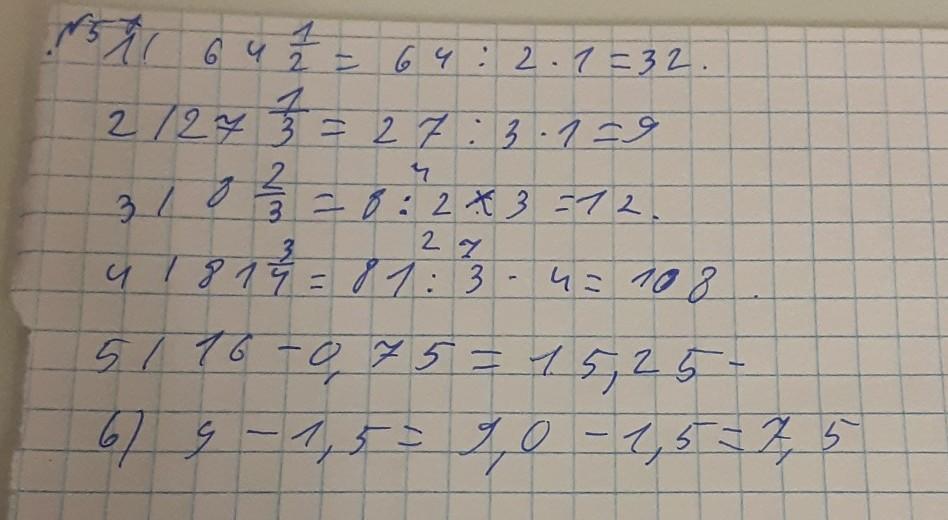 №57
1/ 64 1/2 = 64 : 2 · 1 = 32.
2/ 27 1/3 = 27 : 3 · 1 = 9
3/ 8 2/3 = 8 : 2 × 3 = 12.
4/ 81 3/4 = 81 : 3 · 4 = 108.
5/ 16 - 0,75 = 15,25 -
6) 9 - 1,5 = 9,0 - 1,5 = 7,5